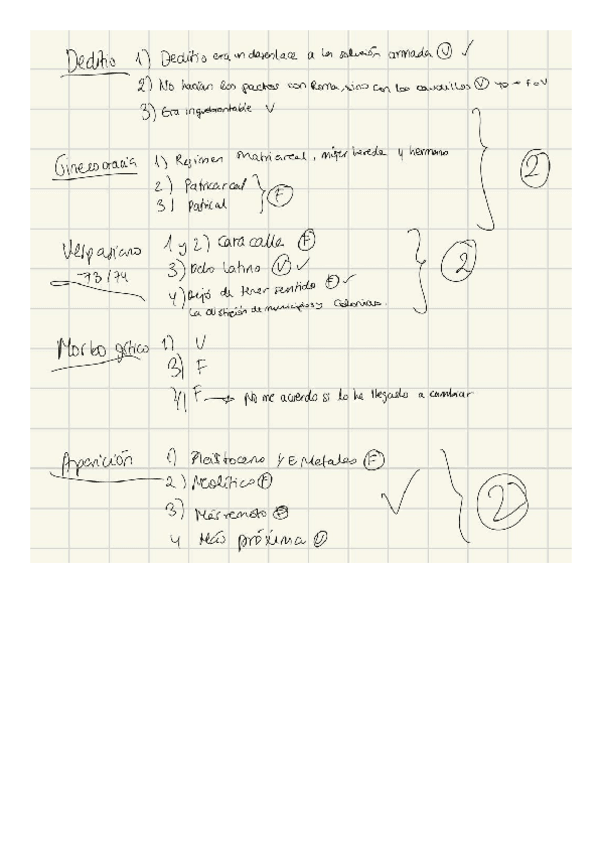 Deditio 1) Deditio era un desenlace a la solución armada (V) ✓
2) No hacían los pactos con Roma, sino con los caudillos (V) yo → F o V
3) Era inquebrantable V
Ginecocracia 1) Regimen matriarcal, mujer hereda y hermano
2) Patriarcal
3) Patrical } (F)
2
Vespasiano 1 y 2) Caracalla (F)
73/74
3) Dcho Latino (V) ✓
4) Dejó de tener sentido (F) ✓
La distinción de municipios y colonias.
2
Morbo gótico 1) V
3) F
4) F → No me acuerdo si lo he llegado a cambiar
Aparición 1) Pleistoceno y E Metales (F)
2) Neolítico (F)
3) Más remoto (F)
4 Más próxima (V)
✓ 2